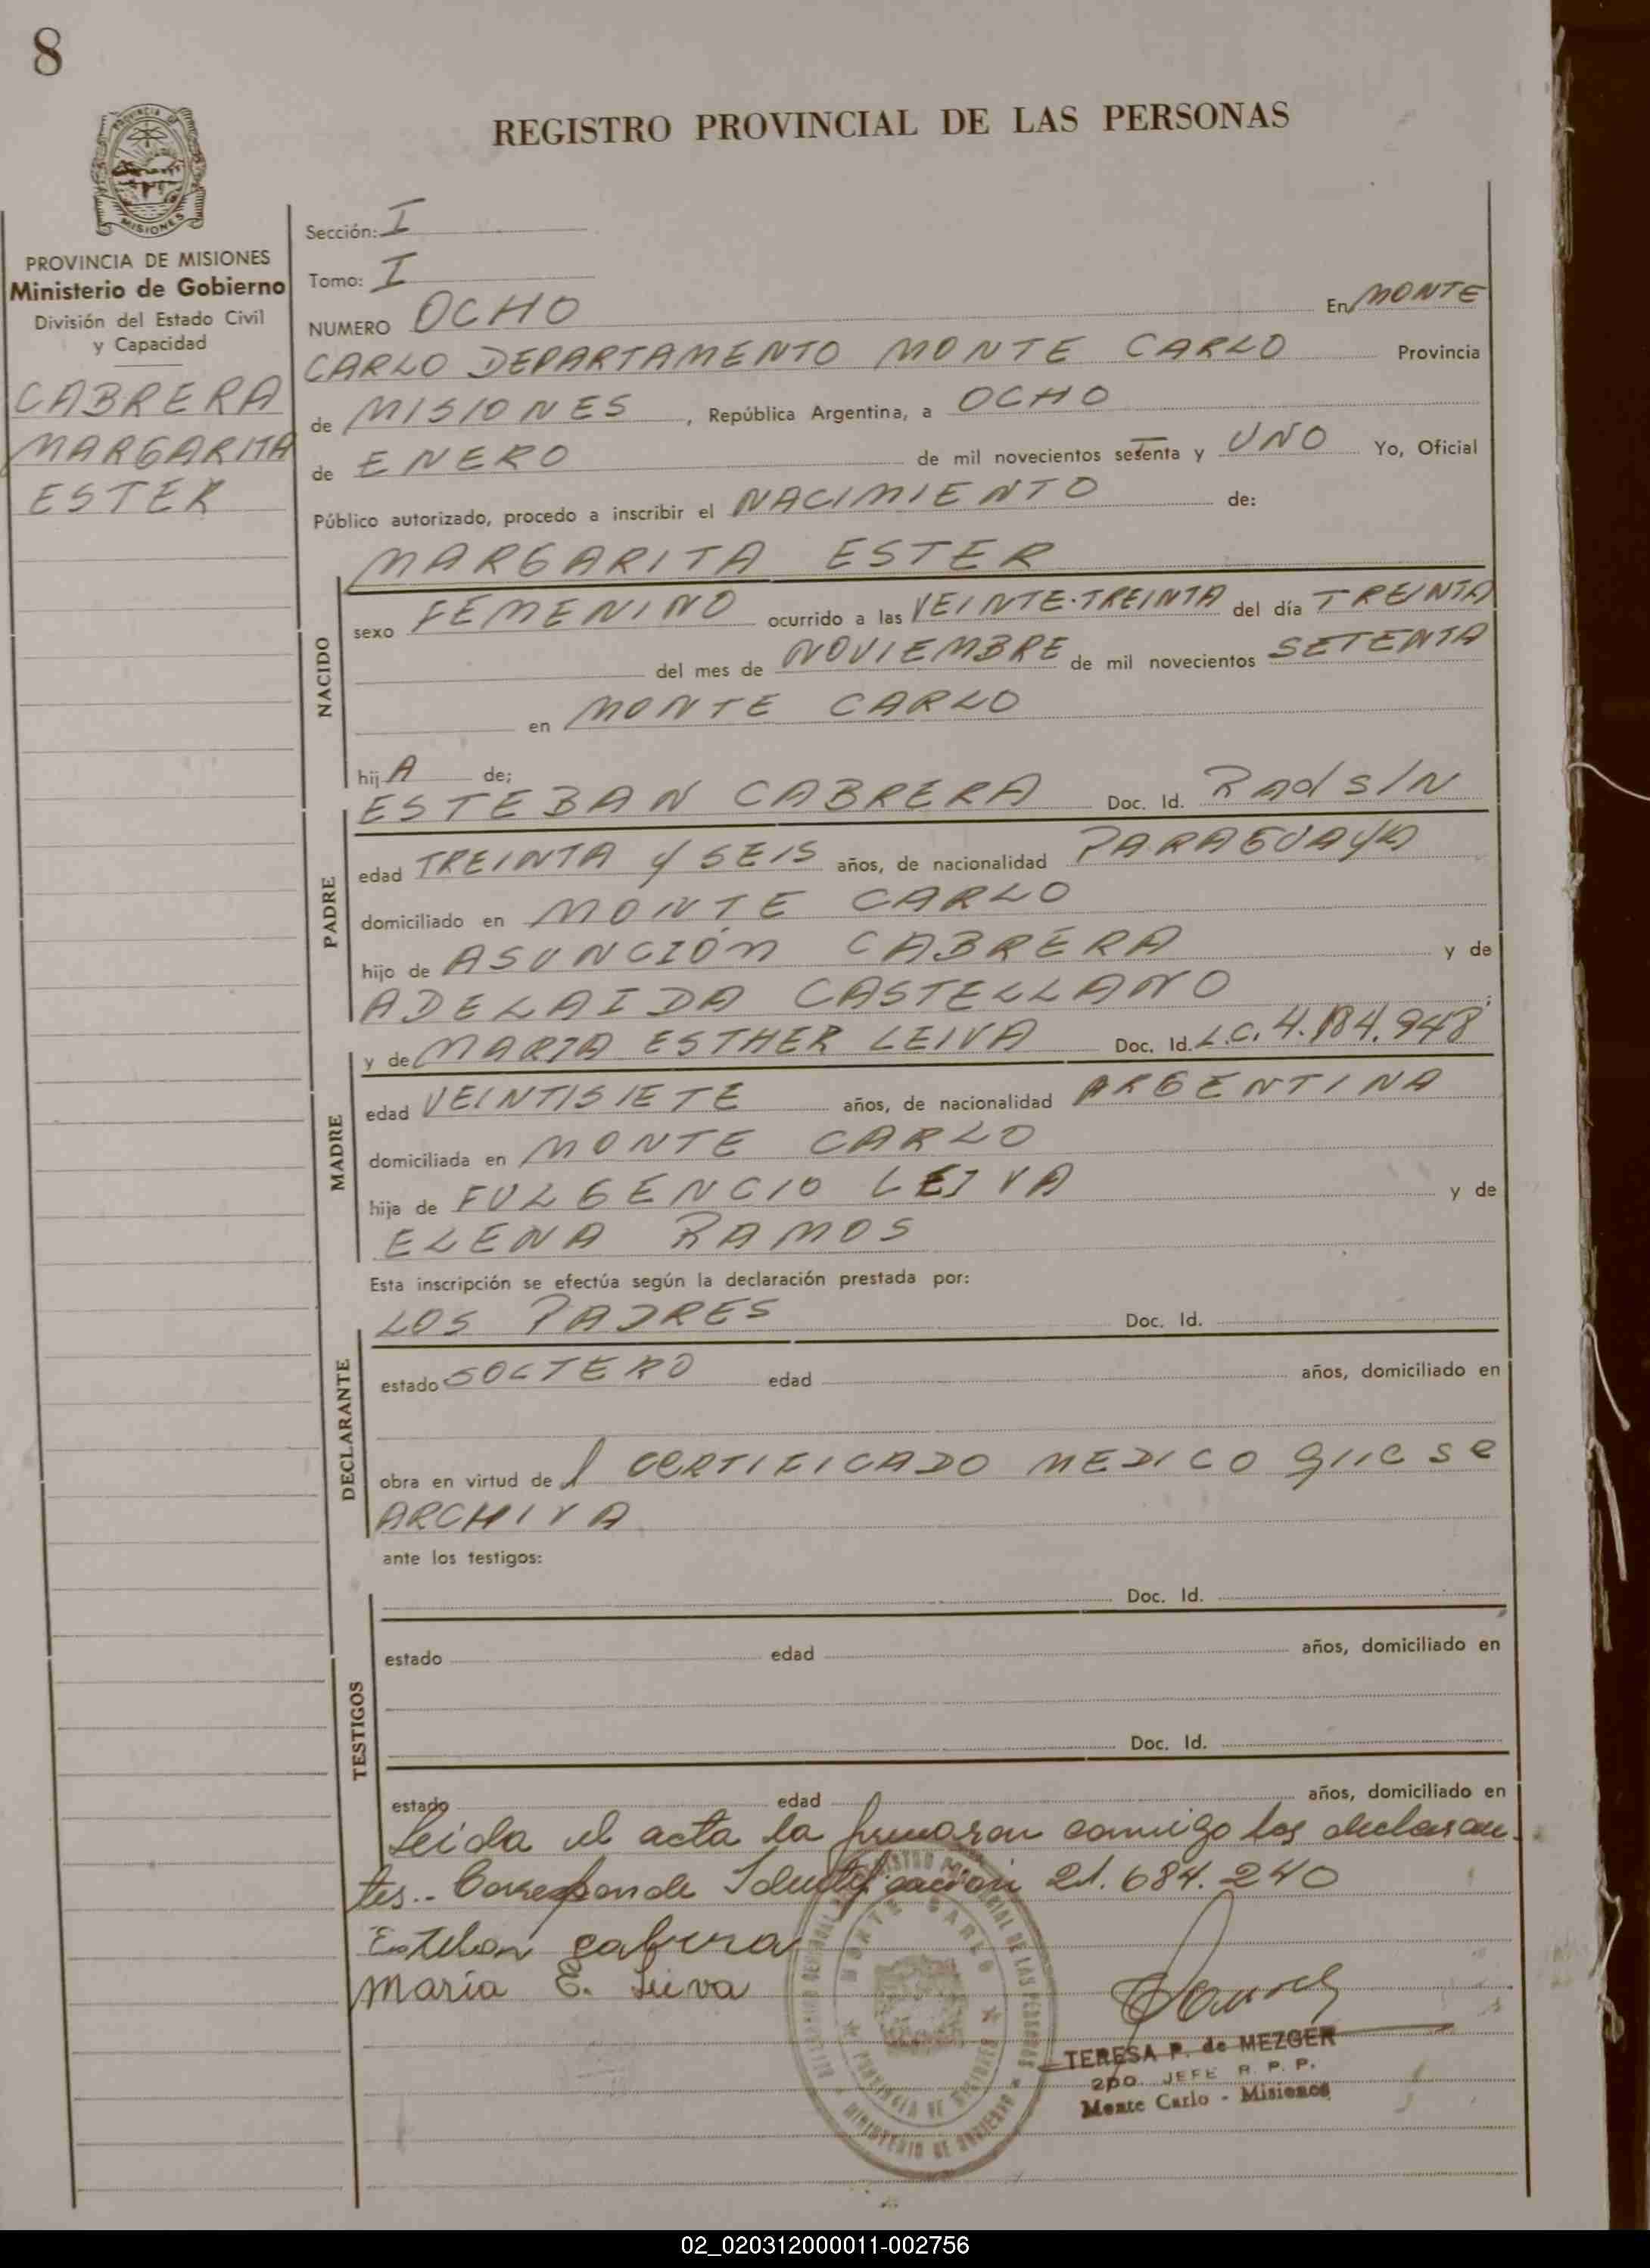 8
REGISTRO PROVINCIAL DE LAS PERSONAS
PROVINCIA DE MISIONES
Ministerio de Gobierno
División del Estado Civil
y Capacidad
CABRERA
MARGARITA
ESTER
Sección: I
Tomo: I
NUMERO OCHO En MONTE
CARLO DEPARTAMENTO MONTE CARLO Provincia
de MISIONES, República Argentina, a OCHO
de ENERO de mil novecientos setenta y UNO Yo, Oficial
Público autorizado, procedo a inscribir el NACIMIENTO de:
MARGARITA ESTER
NACIDO
sexo FEMENINO ocurrido a las VEINTE-TREINTA del día TREINTA
del mes de NOVIEMBRE de mil novecientos SETENTA
en MONTE CARLO
hij A de;
ESTEBAN CABRERA Doc. Id. RAd S/N
PADRE
edad TREINTA y SEIS años, de nacionalidad PARAGUAYA
domiciliado en MONTE CARLO
hijo de ASUNCIÓN CABRERA y de
ADELAIDA CASTELLANO;
y de MARIA ESTHER LEIVA Doc. Id. L.C. 4.184.948
MADRE
edad VEINTISIETE años, de nacionalidad ARGENTINA
domiciliada en MONTE CARLO
hija de FULGENCIO LEIVA y de
ELENA RAMOS
Esta inscripción se efectúa según la declaración prestada por:
LOS PADRES Doc. Id.
DECLARANTE
estado SOLTERO edad años, domiciliado en
obra en virtud de l CERTIFICADO MEDICO que se
ARCHIVA
ante los testigos:
Doc. Id.
TESTIGOS
estado edad años, domiciliado en
Doc. Id.
estado edad años, domiciliado en
Leida el acta la firmaron conmigo los declaran-
tes.- Corresponde Identificación 21.684.240
Esteban Cabrera
María E. Leiva
TERESA P. de MEZGER
2DO. JEFE R. P. P.
Monte Carlo - Misiones
MONTE CARLO
PROVINCIA DE MISIONES
MINISTERIO DE GOBIERNO
02_020312000011-002756